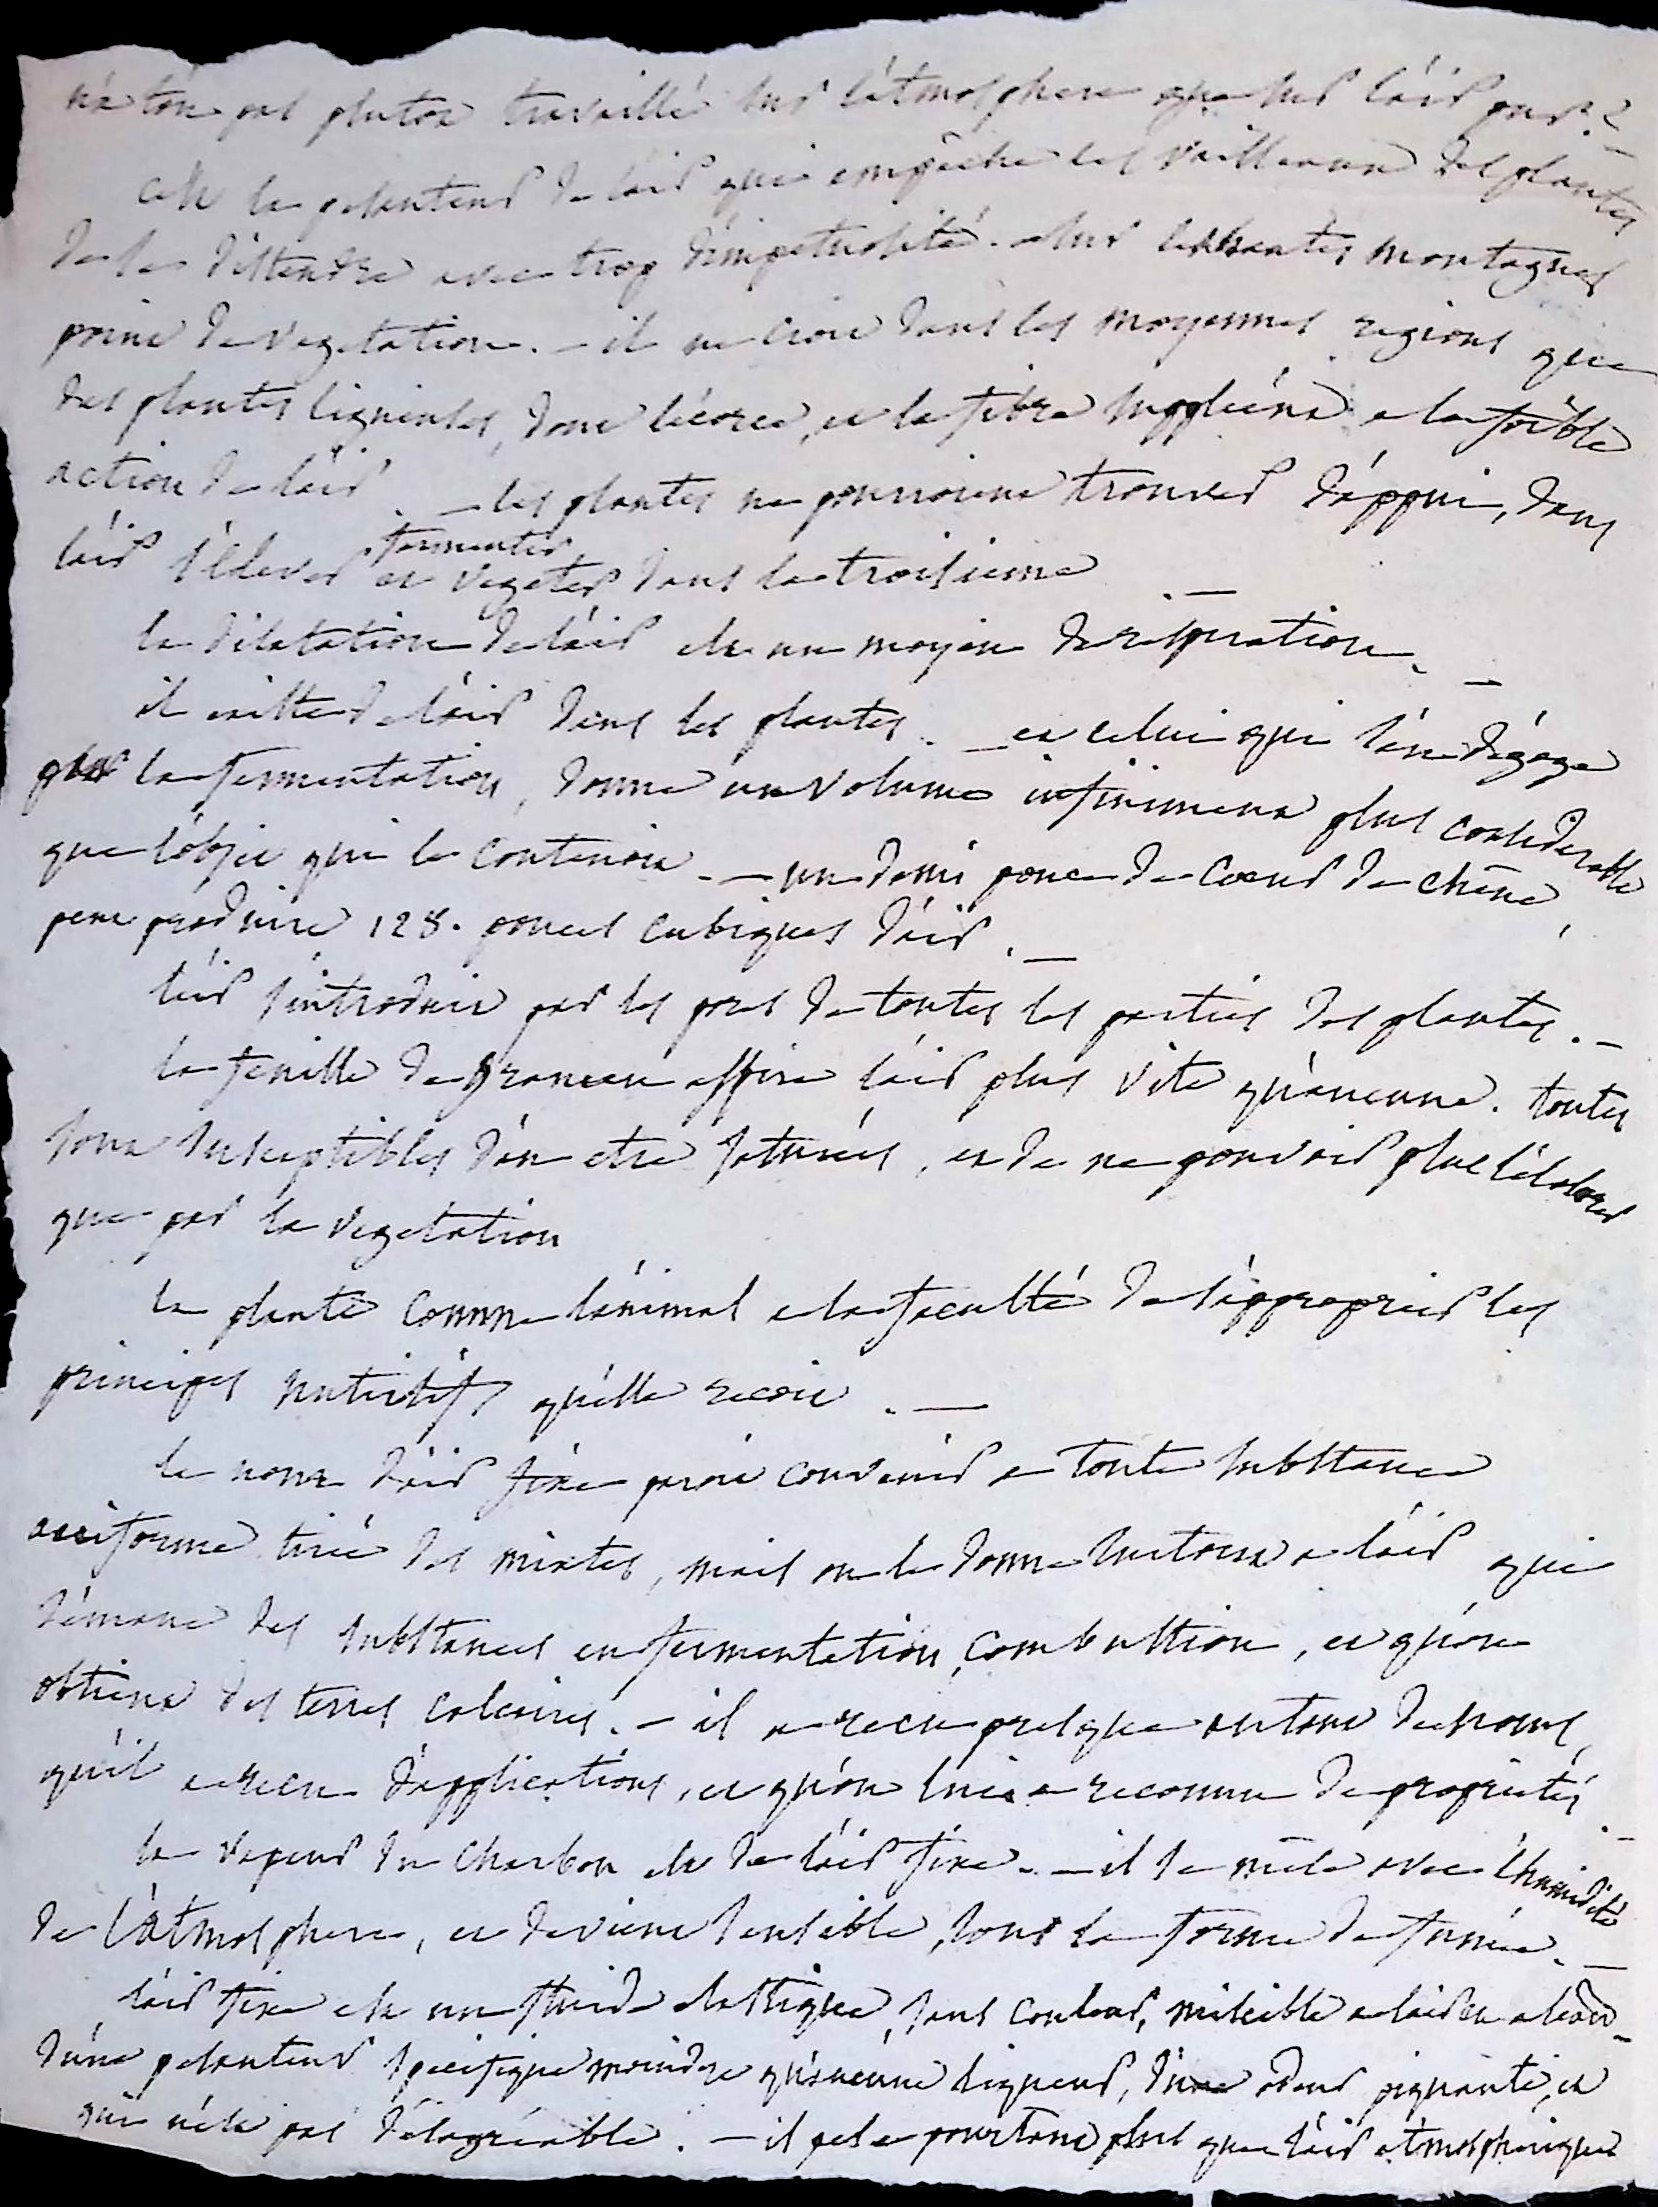 n'a t'on pas plutox travaillé sur l'atmosphere que sur l'air pur? —
c'est la pesanteur de l'air qui empêche les vaisseaux des plantes
de se distendre avec trop d'impetuosité. — sur les hautes montagnes
point de vegetation. — il ne croit dans les moyennes regions que
des plantes ligneuses, dont l'écorce, et la fibre suppléent a la foible
action de l'air. — les plantes ne pourroient trouver d'appui, dans
l'air s'elever fermenter et vegeter dans la troisieme —
la dilatation de l'air est un moyen de respiration. —
il existe de l'air dans les plantes. — et celui qui s'en dégage
par la fermentation, donne un volume infiniment plus considerable
que l'objet qui le contenoit. — un demi pouce de coeur de chêne,
peut produire 128. pouces cubiques d'air. —
l'air s'introduit par les pores de toutes les parties des plantes. —
la feuille de aspire l'air plus vite qu'aucune. toutes
sont susceptibles d'en etre saturées, et de ne pouvoir plus l'élaborer
que par la vegetation
la plante comme l'animal a la faculté de s'approprier les
principes nutritifs qu'elle recoit. —
le nom d'air fixe paroit convenir a toute substance
aeriforme tirée des mixtes, mais on le donne surtout a l'air qui
s'émane des substances en fermentation, combustion, et qu'on
obtient des terres calcaires. — il a recu presque autant de noms,
qu'il a recu d'applications, et qu'on lui a reconnu de proprietés. —
la vapeur du charbon est de l'air fixe. — il se mêle avec l'humidité
de l'atmosphere, et devient sensible, sous la forme de fumée. —
l'air fixe est un fluide elastique, sans couleur, miscible a l'air et a l'eau —
d'une pesanteur specifique moindre qu'aucune liqueur, d'une odeur piquante, et
qui n'est pas désagréable. — il pese pourtant plus que l'air atmospherique